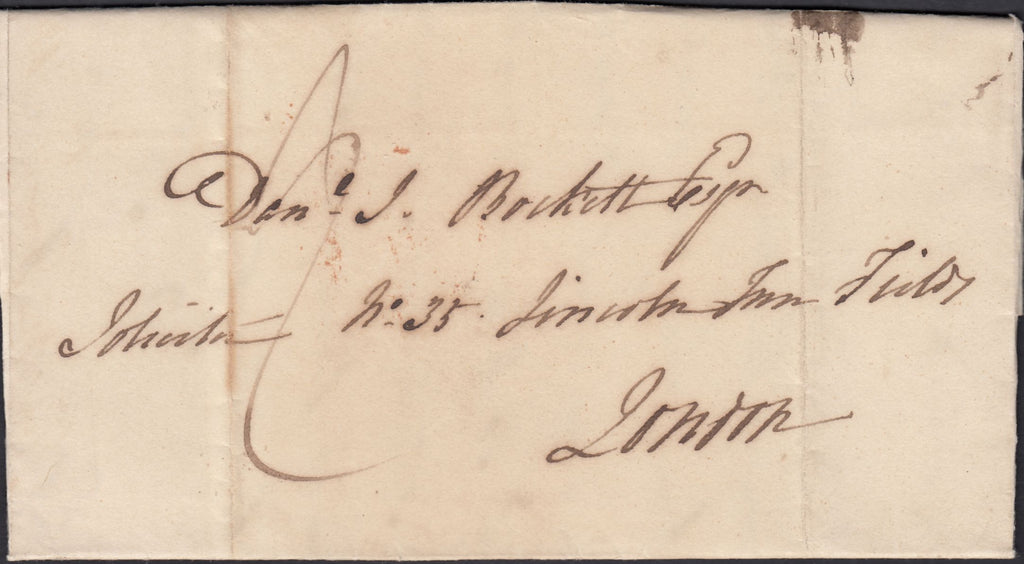 Danl. J. Bockett Esqr
Solicitor No. 35. Lincoln Inn Fields
London